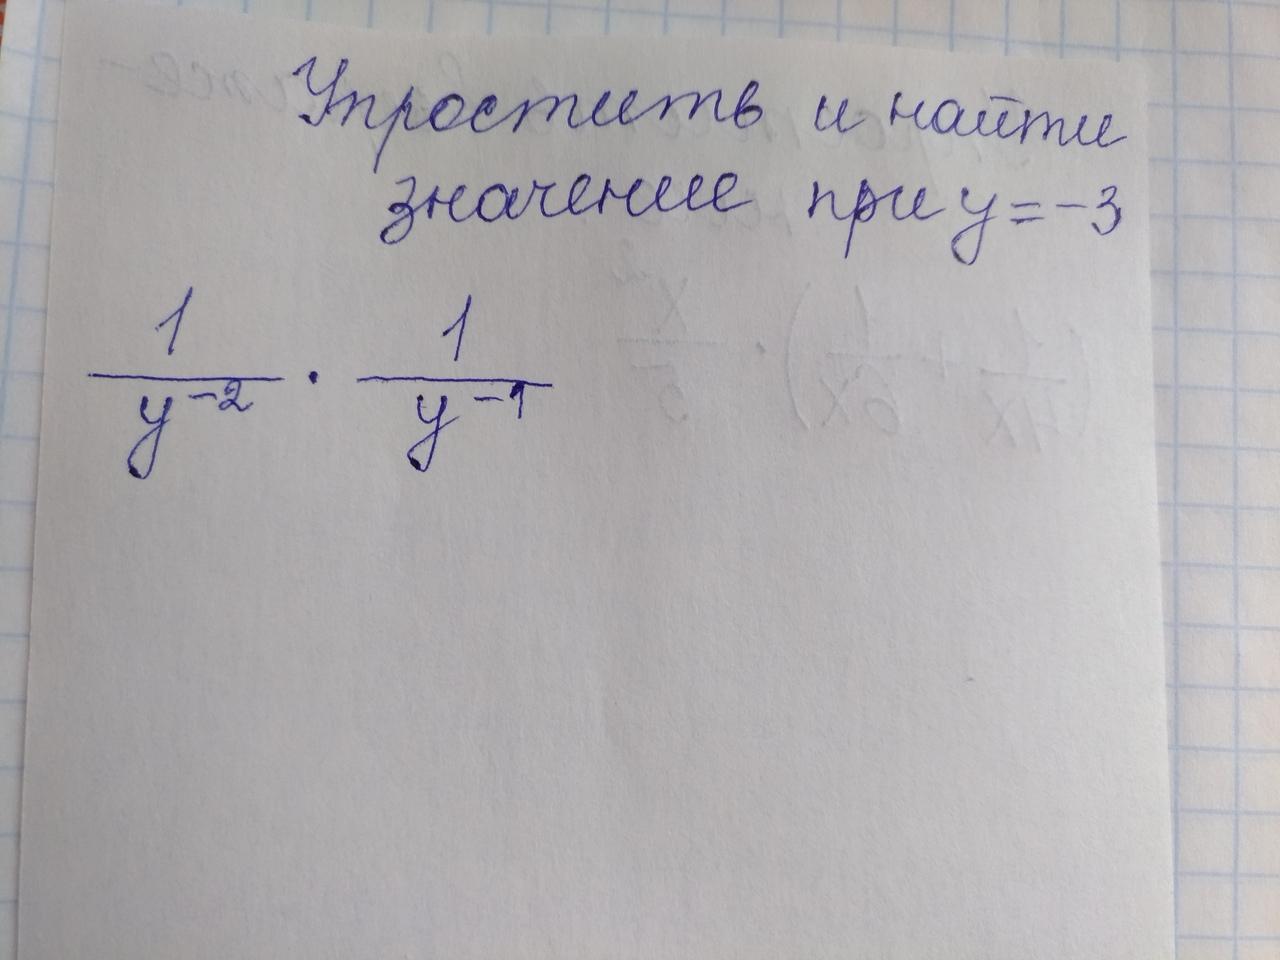 Упростить и найти
значение при y = -3
1/y^-2 · 1/y^-1